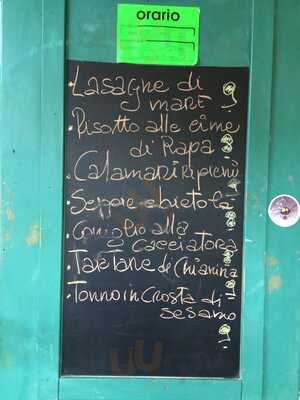 orario
Lasagne di
mare
Risotto alle cime
di Rapa
Calamari Ripieni
Seppore e bietola
Coniglio alla
Cacciatora
Tartare di Chianina
Tonno in Crosta di
sesamo